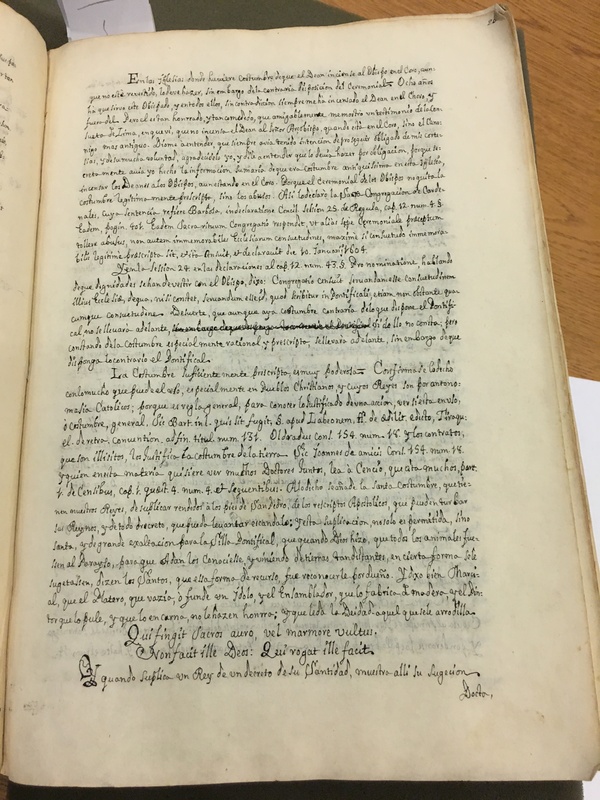 En las Iglesias donde huviere costumbre, de que el Dean inciense al Obispo en el Coro, aun-
que no esté revestido, lo deve hazer, sin embargo de la contraria disposicion del Ceremonial. Ocho años
ha que sirvo este Obispado, y en todos ellos, sin contradicion siempre me ha incensado el Dean en el Choro, y
fuera del. Pero el es tan honrado, y tan comedido, que amigablemente, me mostro un testimonio de la Con-
sueta de Lima, en que vi, que no inciensa el Dean al señor Arçobispo, quando està en el Coro, sino el Cano-
nigo mas antiguo. Diome a entender, que siempre avia tenido intencion de proseguir obligado de mis corte-
sias, y de la mucha voluntad, agradeciselo yo, y dile a entender que lo devia hazer por obligacion, porque se-
cretamente avia yo hecho la informacion sumaria de que era costumbre antiquissima en esta Iglesia,
incensar los Deanes a los Obispos, aun estando en el Coro. Porque el Ceremonial de los Obispos no quita la
costumbre legitimamente prescripta, sino los abusos. Assi lo declarò la Sacra Congregacion de Carde-
nales, cuya sentencia, refiere Barbosa, in declaratione Concil. session 25. de Regula, cap. 12. num. 4. §.
Eadem, pagin. 401. Eadem Sacra rituum Congregatio respondit, ut alias sepe Ceremoniale præceptum
tollere abusus, non autem immemorabiles Ecclesiarum consuetudines, maxime si consuetudo immemora-
bilis legitime præscripta sit, et ita censuit, et declaravit die 10. Ianuarij 1604.
Y en la session 24. en las declaraciones al cap. 12. num. 43. §. Pro nominatione, hablando
de que dignidades se han de vestir con el Obispo, dixo: Congregatio censuit servandam esse consuetudinem
illius Ecclesiæ, de qua, nisi constet, servandum esse id, quod scribitur in Pontificali, etiam non obstante, qua-
cumque consuetudine. De suerte, que aunque aya costumbre contraria de lo que dispone el Pontifi-
cal, no se llevarà adelante, si de ello no consta; pero
constando de la costumbre especialmente racional y prescripta, se llevara adelante, sin embargo de que
disponga lo contrario el Pontifical.
La Costumbre suficientemente prescripta, es muy poderosa. Confirma lo dicho
con lo mucho que puede el uso, especialmente en Pueblos Christianos, y cuyos Reyes son por antono-
masia Catolicos; porque es regla general, para conocer lo justificado de una accion, ver si esta en uso,
ò costumbre, general. Sic Bart. in l. quis sit fugit. §. apud Labeonem, ff. de ædilit. edicto, Thiraqu-
el. de retra. convention. ad fin. titul. num. 131. Oldradus conl. 154. num. 18. Y los contratos,
que son illicitos, los justifica la costumbre de la tierra. Sic Ioannes de amicis Conl. 154. num. 18.
Y quien en esta materia quisiere ver muchos Doctores juntos, lea à Cencio, que cita muchos, part.
1. de Censibus, cap. 1. quæst. 4. num. 4. et sequentibus. A lo dicho se añade la santa Costumbre, que tie-
nen nuestros Reyes, de suplicar rendidos à los pies de San Pedro, de los rescriptos Apostolicos, que pueden turbar
sus Reynos, y de todo decreto, que pueda levantar escandalo; y esta suplicacion, no solo es permitida, sino
santa, y de grande exaltacion para la Silla Pontifical, que quando Dios hizo, que todos los animales fue-
sen al Parayso, para que Adan los Conociesse, y uniendo de tierras tan distantes, en cierta forma se le
sugetassen, dizen los Santos, que esta forma de recurso, fue reconocerle por dueño. Y dixo bien Marci-
al, que el Platero, que vazia, ò funde un Idolo, y el Ensamblador, que lo fabrica de madera, y el Pin-
tor que lo pule, y que lo encarna, no le hazen honrra; y que le da la Deidad aquel que se le arrodilla.
Qui fingit sacros auro, vel marmore vultus,
Non facit ille Deos: Qui rogat ille facit.
Y quando suplica un Rey de un decreto de su Santidad, muestra alli su sugecion
Docta,